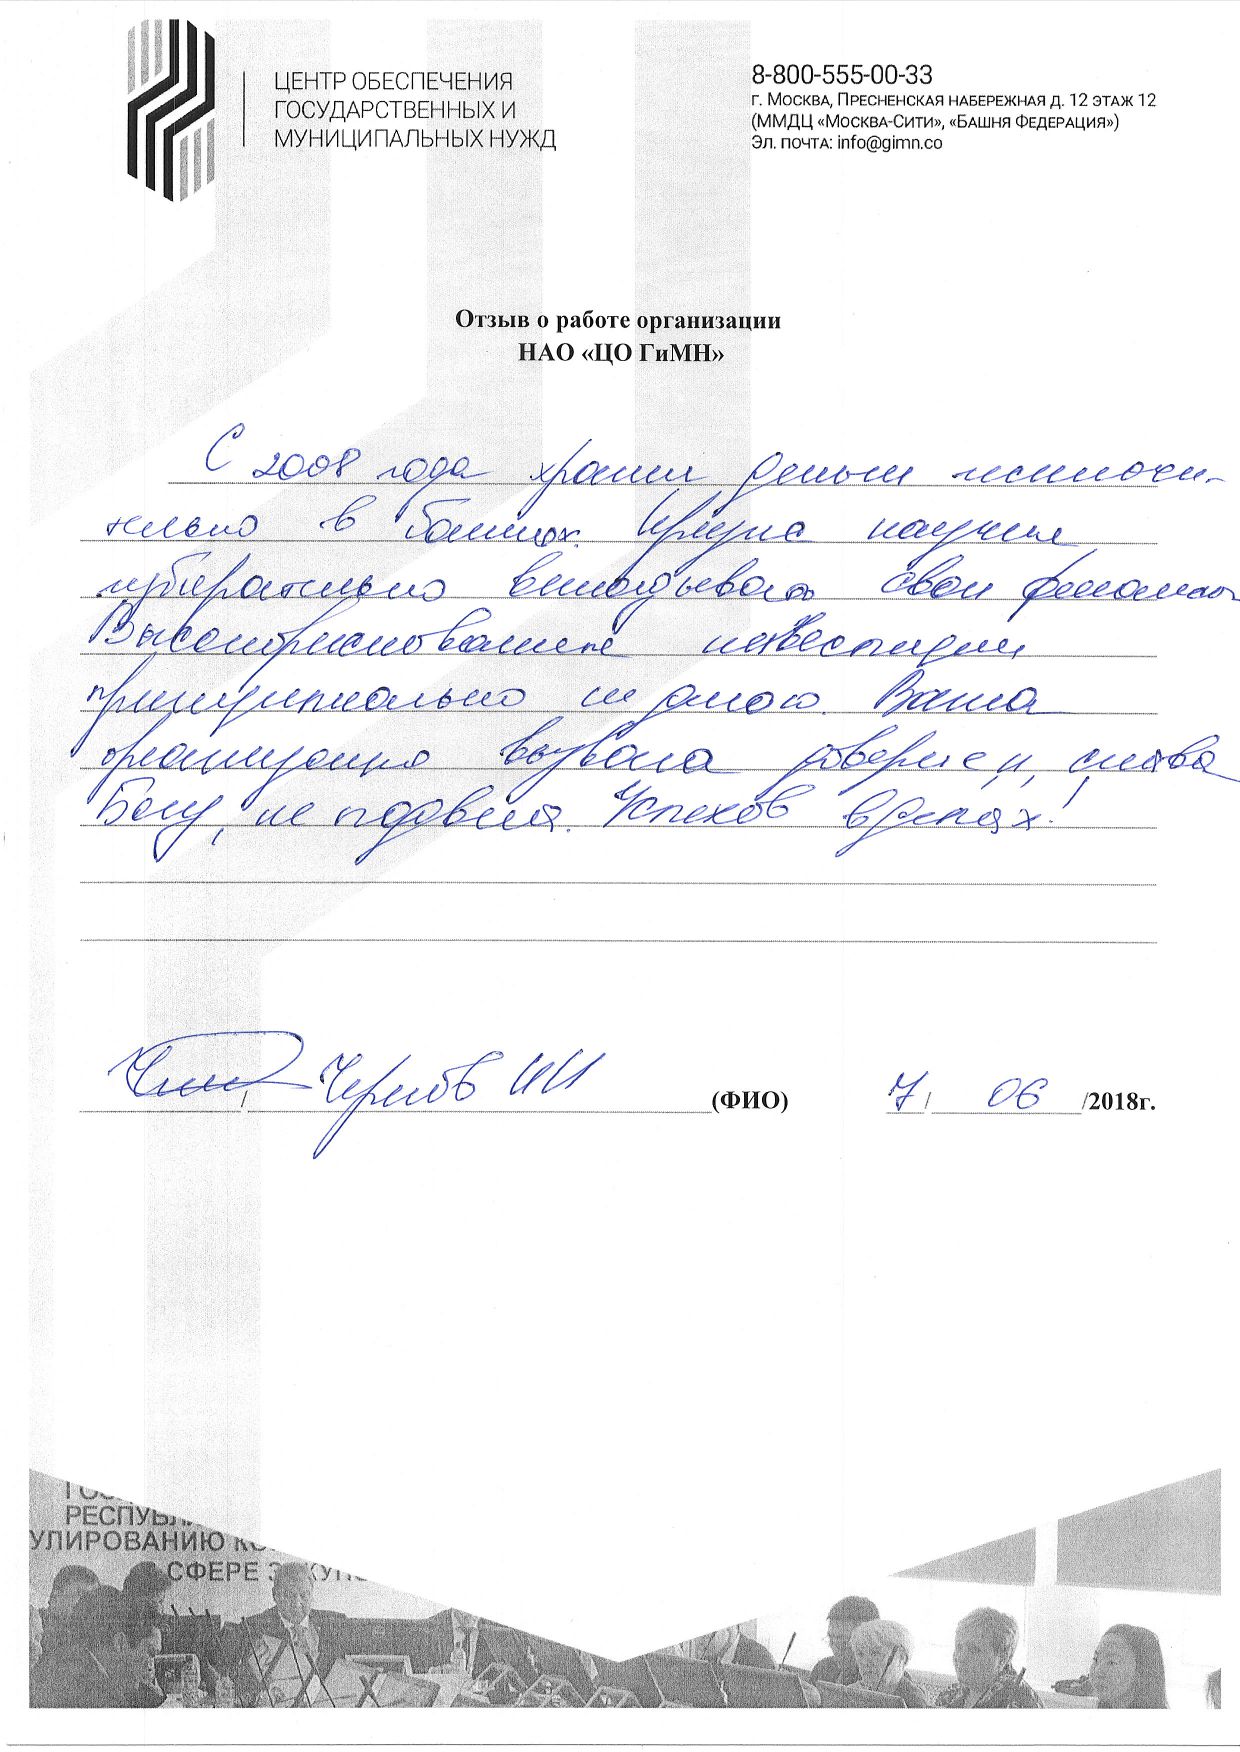 ЦЕНТР ОБЕСПЕЧЕНИЯ
ГОСУДАРСТВЕННЫХ И
МУНИЦИПАЛЬНЫХ НУЖД
8-800-555-00-33
г. Москва, Пресненская набережная д. 12 этаж 12
(ММДЦ «Москва-Сити», «Башня Федерация»)
Эл. почта: info@gimn.co
Отзыв о работе организации
НАО «ЦО ГиМН»
С 2008 года храним деньги исключи-
тельно в банках. Кризис научил
избирательно вкладывать свои финансы
Высокорискованные инвестиции
принципиально не делаю. Ваша
организация вызвала доверие и, слава
Богу, не подвела. Успехов в делах!
/ Чернов ИИ (ФИО) 7 / 06 /2018г.
РЕСПУБЛ
УЛИРОВАНИЮ КО
СФЕРЕ ЗАКУП